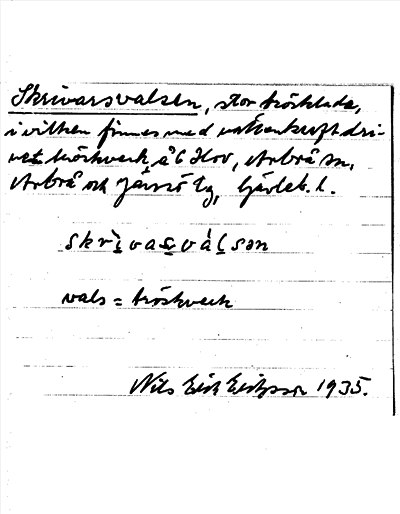 Skrivarsvalsen, stor tröskloda,
i vilken finnes med vattenkraft dri-
vet tröskverk å 6 Hov, Arbrå sn,
Arbrå och Järvsö tg, Gävleb. l.
vals = tröskverk
Nils Erik Eriksson 1935.